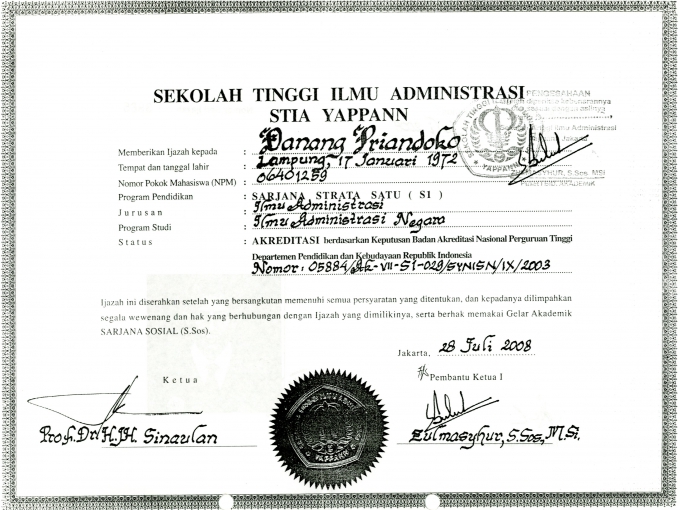 SEKOLAH TINGGI ILMU ADMINISTRASI
STIA YAPPANN
PENGESAHAN
Memberikan Ijazah kepada : Danang Priandoko
Tempat dan tanggal lahir : Lampung, 17 Januari 1972
Nomor Pokok Mahasiswa (NPM) : 06401259
Program Pendidikan : SARJANA STRATA SATU ( S1 )
Jurusan : Ilmu Administrasi
Program Studi : Ilmu Administrasi Negara
Status : AKREDITASI berdasarkan Keputusan Badan Akreditasi Nasional Perguruan Tinggi
Departemen Pendidikan dan Kebudayaan Republik Indonesia
Nomor : 05884/Ak-VII-S1-029/SYNISN/IX/2003
Ijazah ini diserahkan setelah yang bersangkutan memenuhi semua persyaratan yang ditentukan, dan kepadanya dilimpahkan
segala wewenang dan hak yang berhubungan dengan Ijazah yang dimilikinya, serta berhak memakai Gelar Akademik
SARJANA SOSIAL (S.Sos).
Jakarta, 28 Juli 2008
Ketua
Pembantu Ketua I
Prof. Dr. H. JH. Sinaulan
Zulmasyhur, S.Sos, M.Si.
YAPPANN